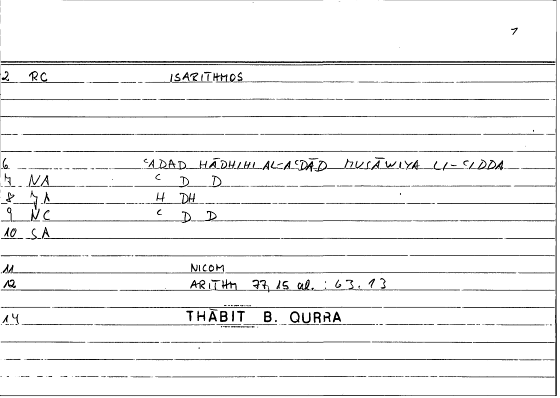 1
2 RC ISARITHMOS
6 ʿADAD HĀDHIHI AL-AʿDĀD MUSĀWIYA LI-ʿIDDA
7 NA ʿ D D
8 7A H DH
9 NC ʿ D D
10 SA
11 NICOM
12 ARITHM 77,15 al. : 63.13
14 THĀBIT B. QURRA